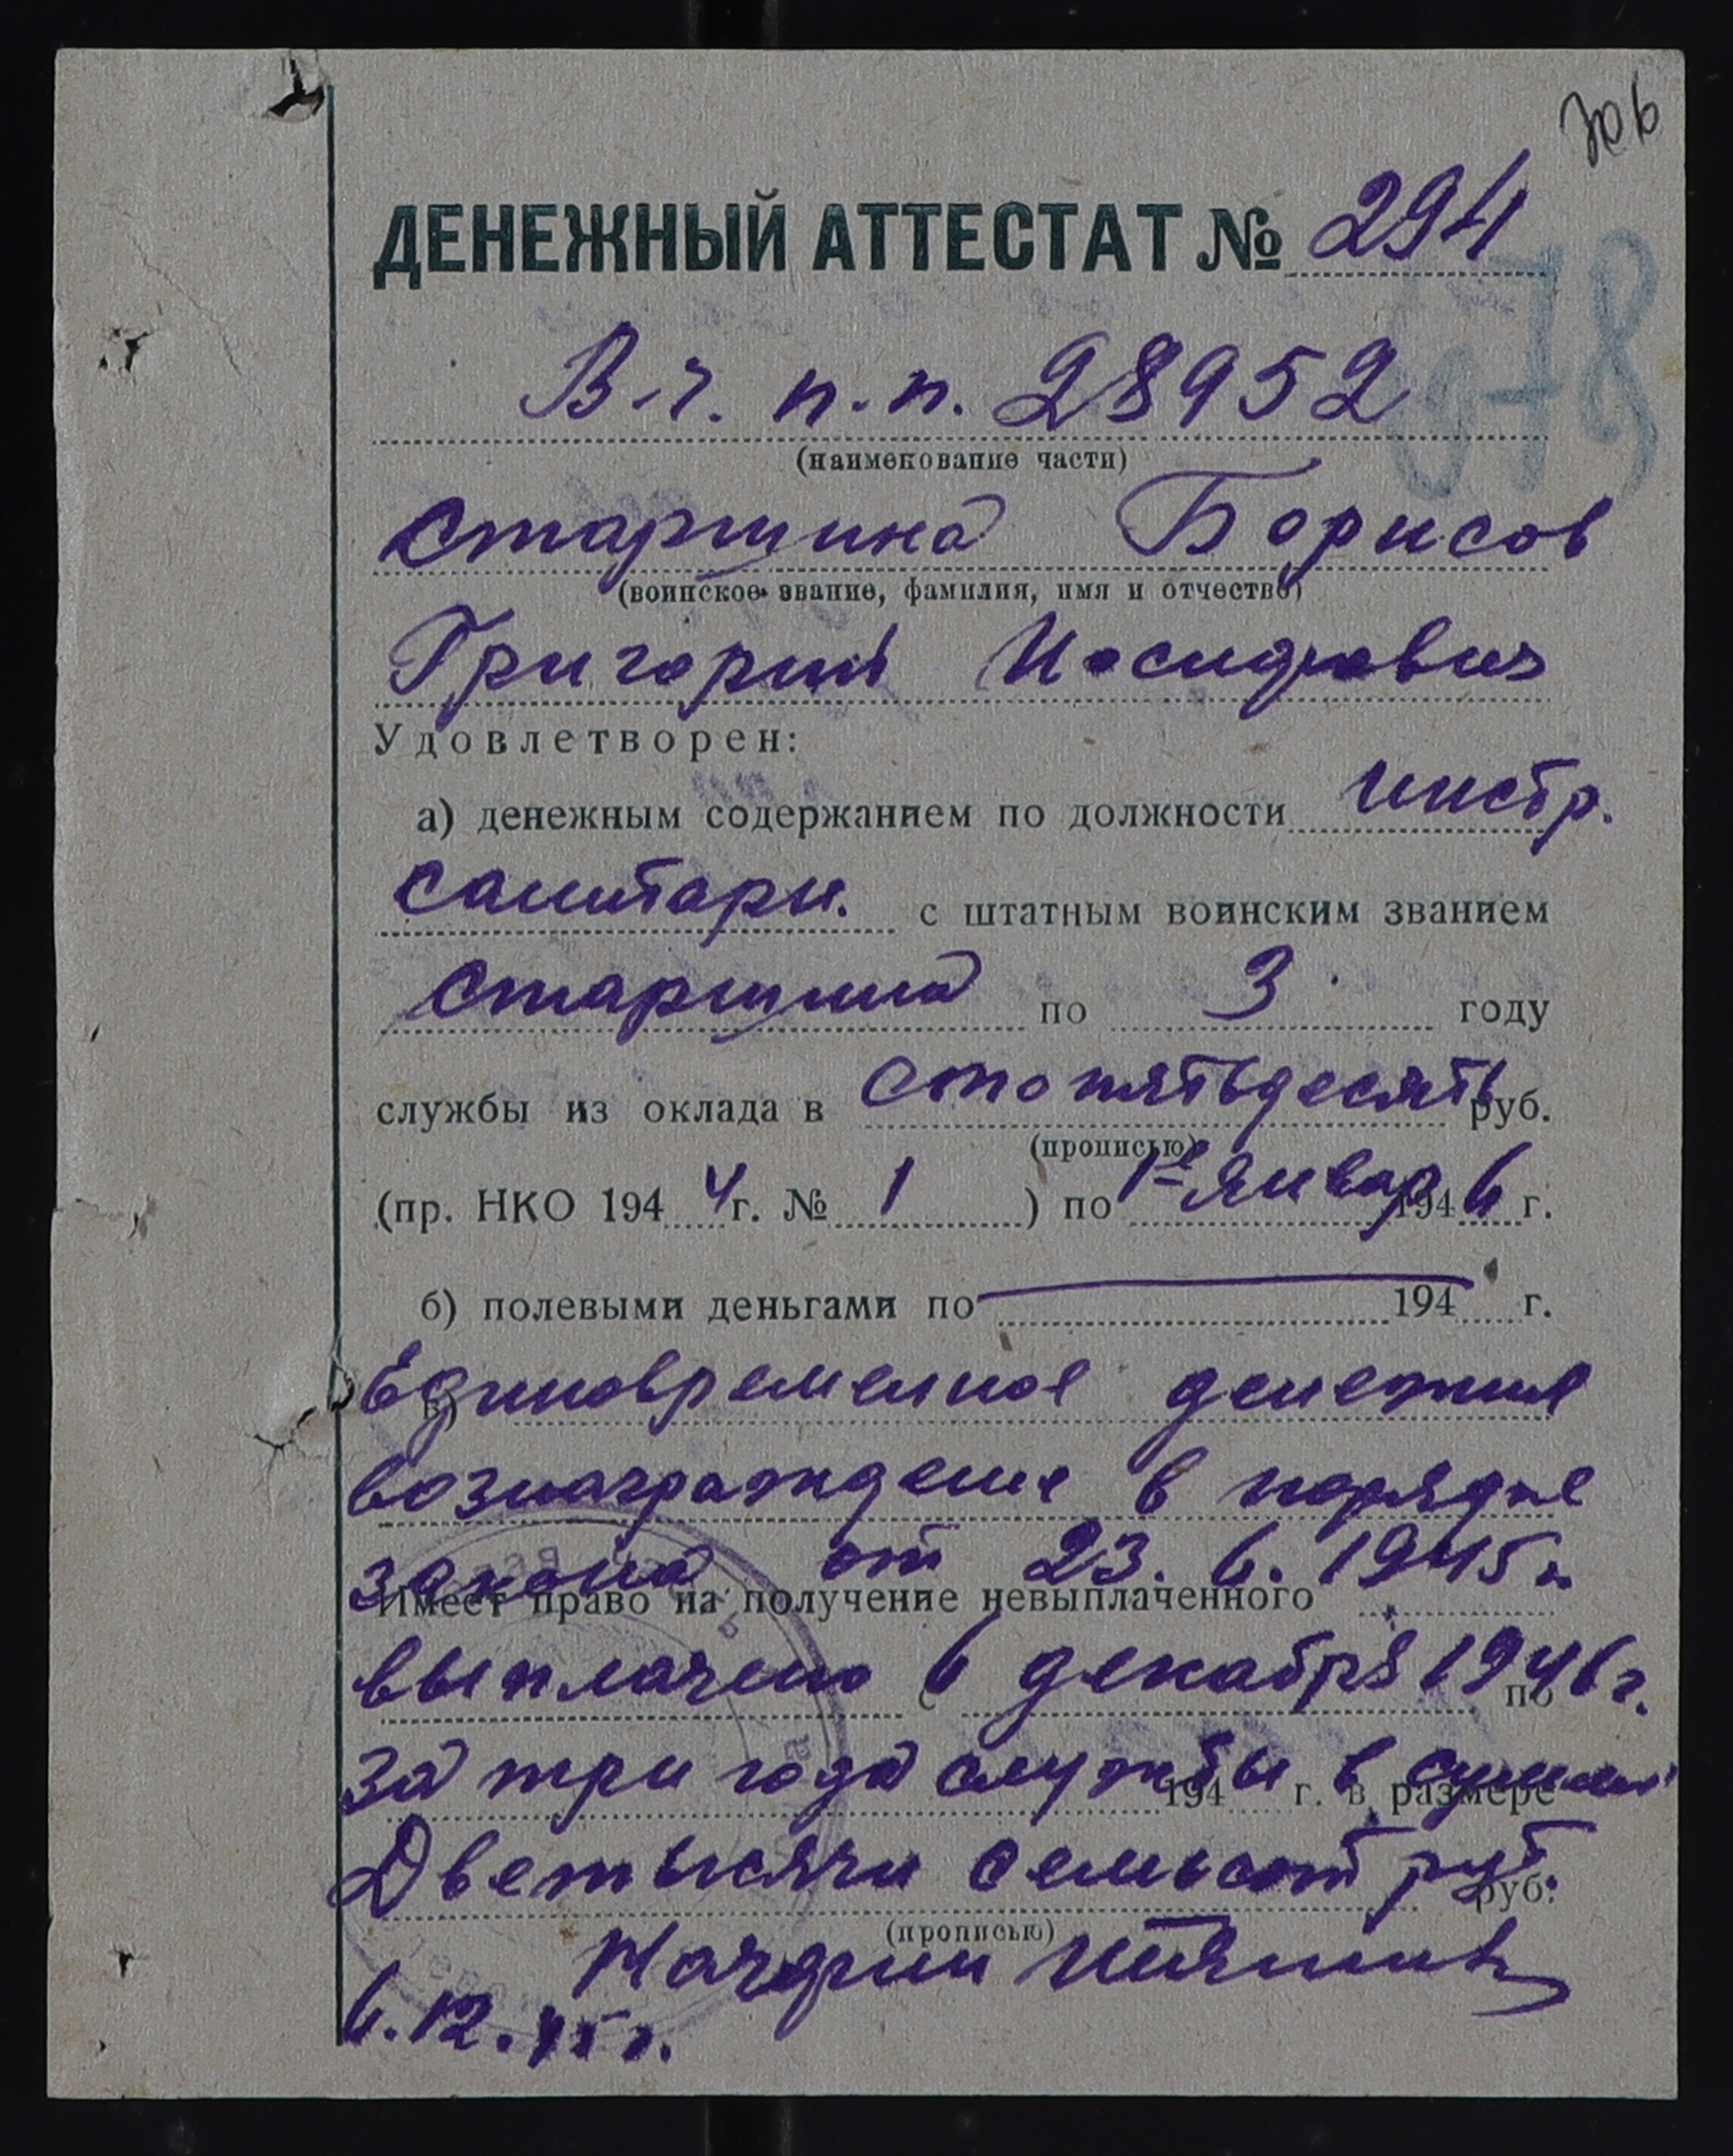 ДЕНЕЖНЫЙ АТТЕСТАТ № 294
678
В-ч. п.п. 28952
(наименование части)
старшина Борисов
(воинское звание, фамилия, имя и отчество)
Григорий Иосифович
Удовлетворен:
а) денежным содержанием по должности инстр.
санитарн. с штатным воинским званием
старшина по 3 году
службы из оклада в сто пятьдесять руб.
(прописью)
(пр. НКО 1944 г. № 1 ) по 1е январ 1946 г.
б) полевыми деньгами по 194 г.
в) Единовременное денежное
вознаграждение в порядке
закона от 23. 6. 1945 г.
Имеет право на получение невыплаченного
выплачено 6 декабря 1946 г.
с по
за три года службы в сумме
194 г. в размере
Две тысячи семьсот руб.
руб.
(прописью)
Начфин
6.12.45 г.